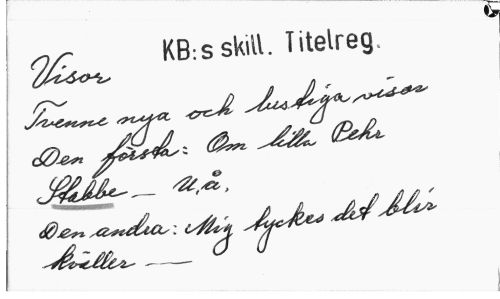 KB:s skill. Titelreg.
Visor
Tvenne nya och lustiga visor
Den första: Om lilla Pehr
Stabbe — U.å.
Den andra: Mig tyckes det blir
kväller —